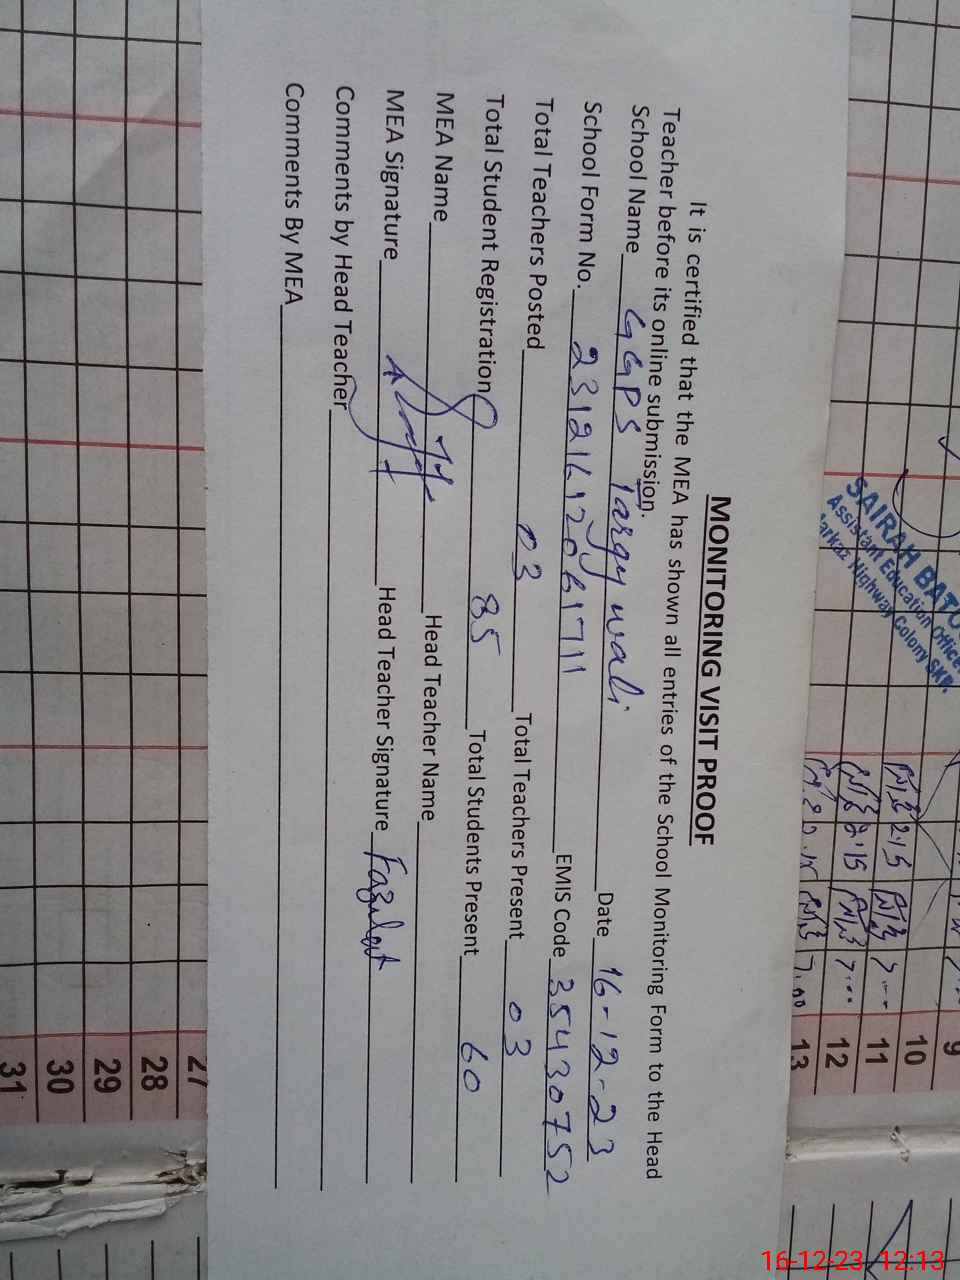 MONITORING VISIT PROOF
It is certified that the MEA has shown all entries of the School Monitoring Form to the Head
Teacher before its online submission.
School Name GGPS Targy wali Date 16-12-23
School Form No. 23121612061711 EMIS Code 35430752
Total Teachers Posted 03 Total Teachers Present 03
Total Student Registration 85 Total Students Present 60
MEA Name Head Teacher Name
MEA Signature Head Teacher Signature
Comments by Head Teacher
Comments By MEA
SAIRAH BATOO
Assistant Education Officer
Markaz Highway Colony SKP.
9
10
11
12
13
27
28
29
30
31
16-12-23 12:13